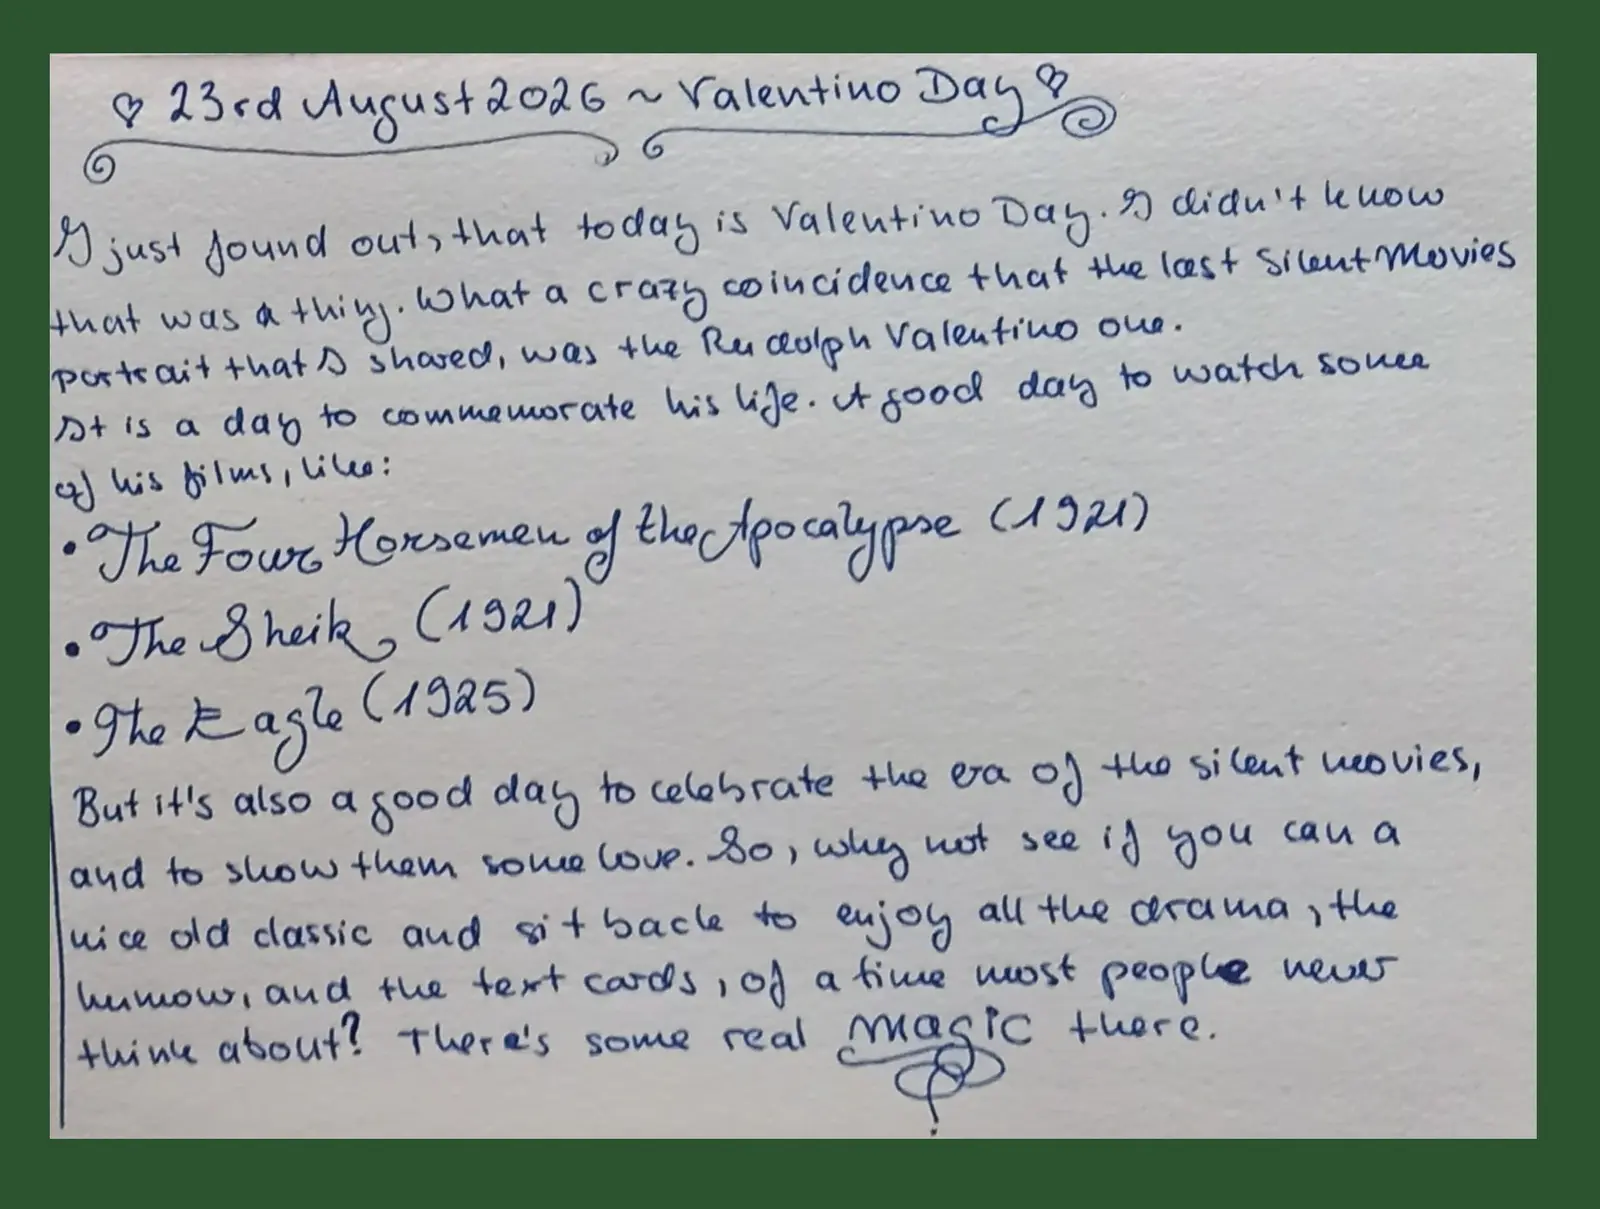 ♡ 23rd August 2026 ~ Valentino Day ♡
I just found out, that today is Valentino Day. I didn't know
that was a thing. What a crazy coincidence that the last Silent Movies
portrait that I shared, was the Rudolph Valentino one.
It is a day to commemorate his life. A good day to watch some
of his films, like:
• The Four Horsemen of the Apocalypse (1921)
• The Sheik, (1921)
• The Eagle (1925)
But it's also a good day to celebrate the era of the silent movies,
and to show them some love. So, why not see if you can a
nice old classic and sit back to enjoy all the drama, the
humour, and the text cards, of a time most people never
think about? There's some real magic there.